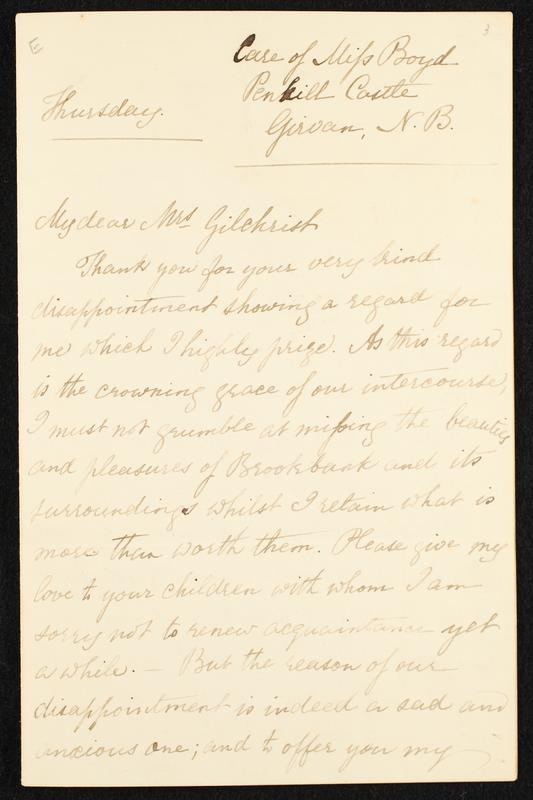 E
3
Care of Miſs Boyd
Penkill Castle
Girvan, N. B.
Thursday.
My dear Mrs Gilchrist
Thank you for your very kind
disappointment showing a regard for
me which I highly prize. As this regard
is the crowning grace of our intercourse,
I must not grumble at miſsing the beauties
and pleasures of Brookbank and its
surroundings whilst I retain what is
more than worth them. Please give my
love to your children with whom I am
sorry not to renew acquaintance yet
a while. — But the reason of our
disappointment is indeed a sad and
anxious one; and to offer you my